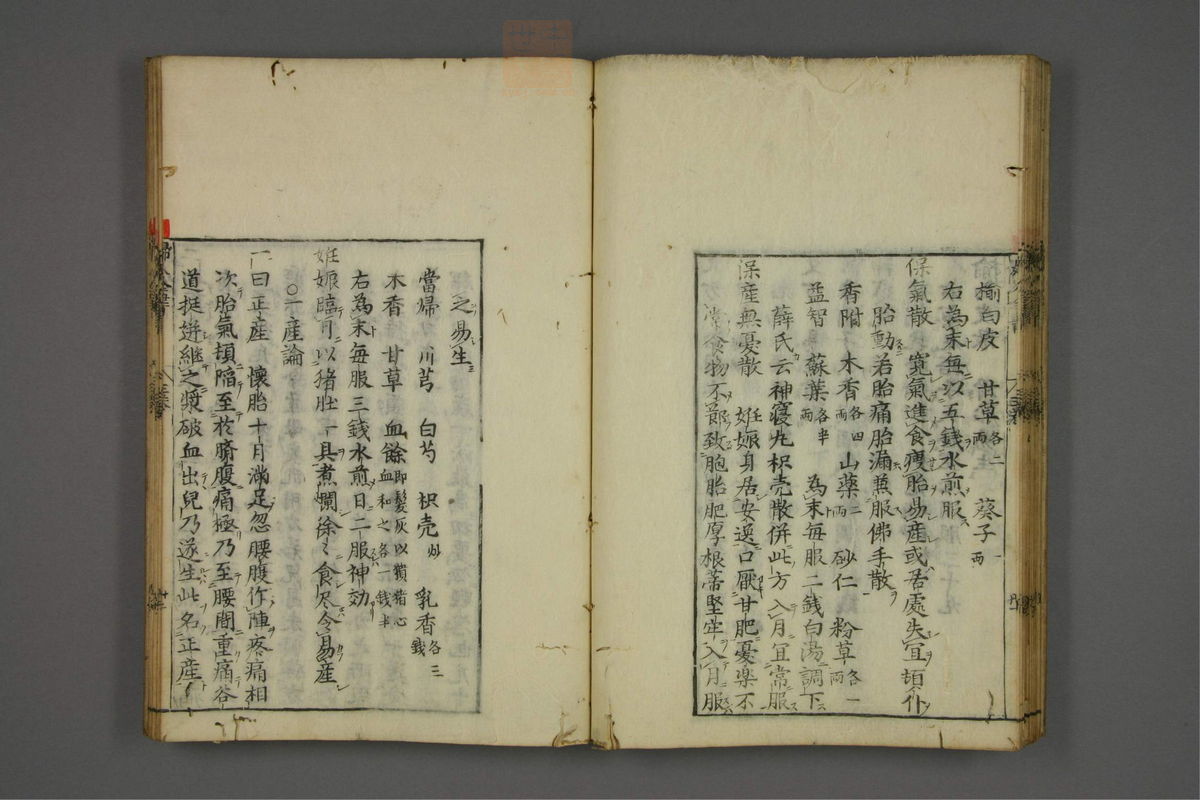 榆白皮 甘草各二両 葵子一両
右為末毎以五銭水煎服
保氣散 寛氣進食痩胎易産或居處失宜頓仆
胎動若胎痛胎漏兼服佛手散
香附四両 木香各四両 山薬二両 砂仁 粉草各一両
益智 蘇葉各半両 為末毎服二銭白湯調下
薛氏云神寢丸枳壳散併此方入月宜常服
保産無憂散 妊娠身居安逸口厭甘肥憂楽不
常食物不節致胞胎肥厚根蒂堅牢入月服
之易生
當歸 川芎 白芍 枳壳炒 乳香各三銭
木香 甘草 血餘即髮灰以獖猪心血和之各一銭半
右為末毎服三銭水煎日二服神効
妊娠臨月以猪肚一具煮爛徐々食尽令易産
○一産論
一曰正産 懷胎十月満足忽腰腹作陣疼痛相
次胎氣頓陥至於臍腹痛極乃至腰間重痛谷
道挺迸継之漿破血出兒乃遂生此名正産